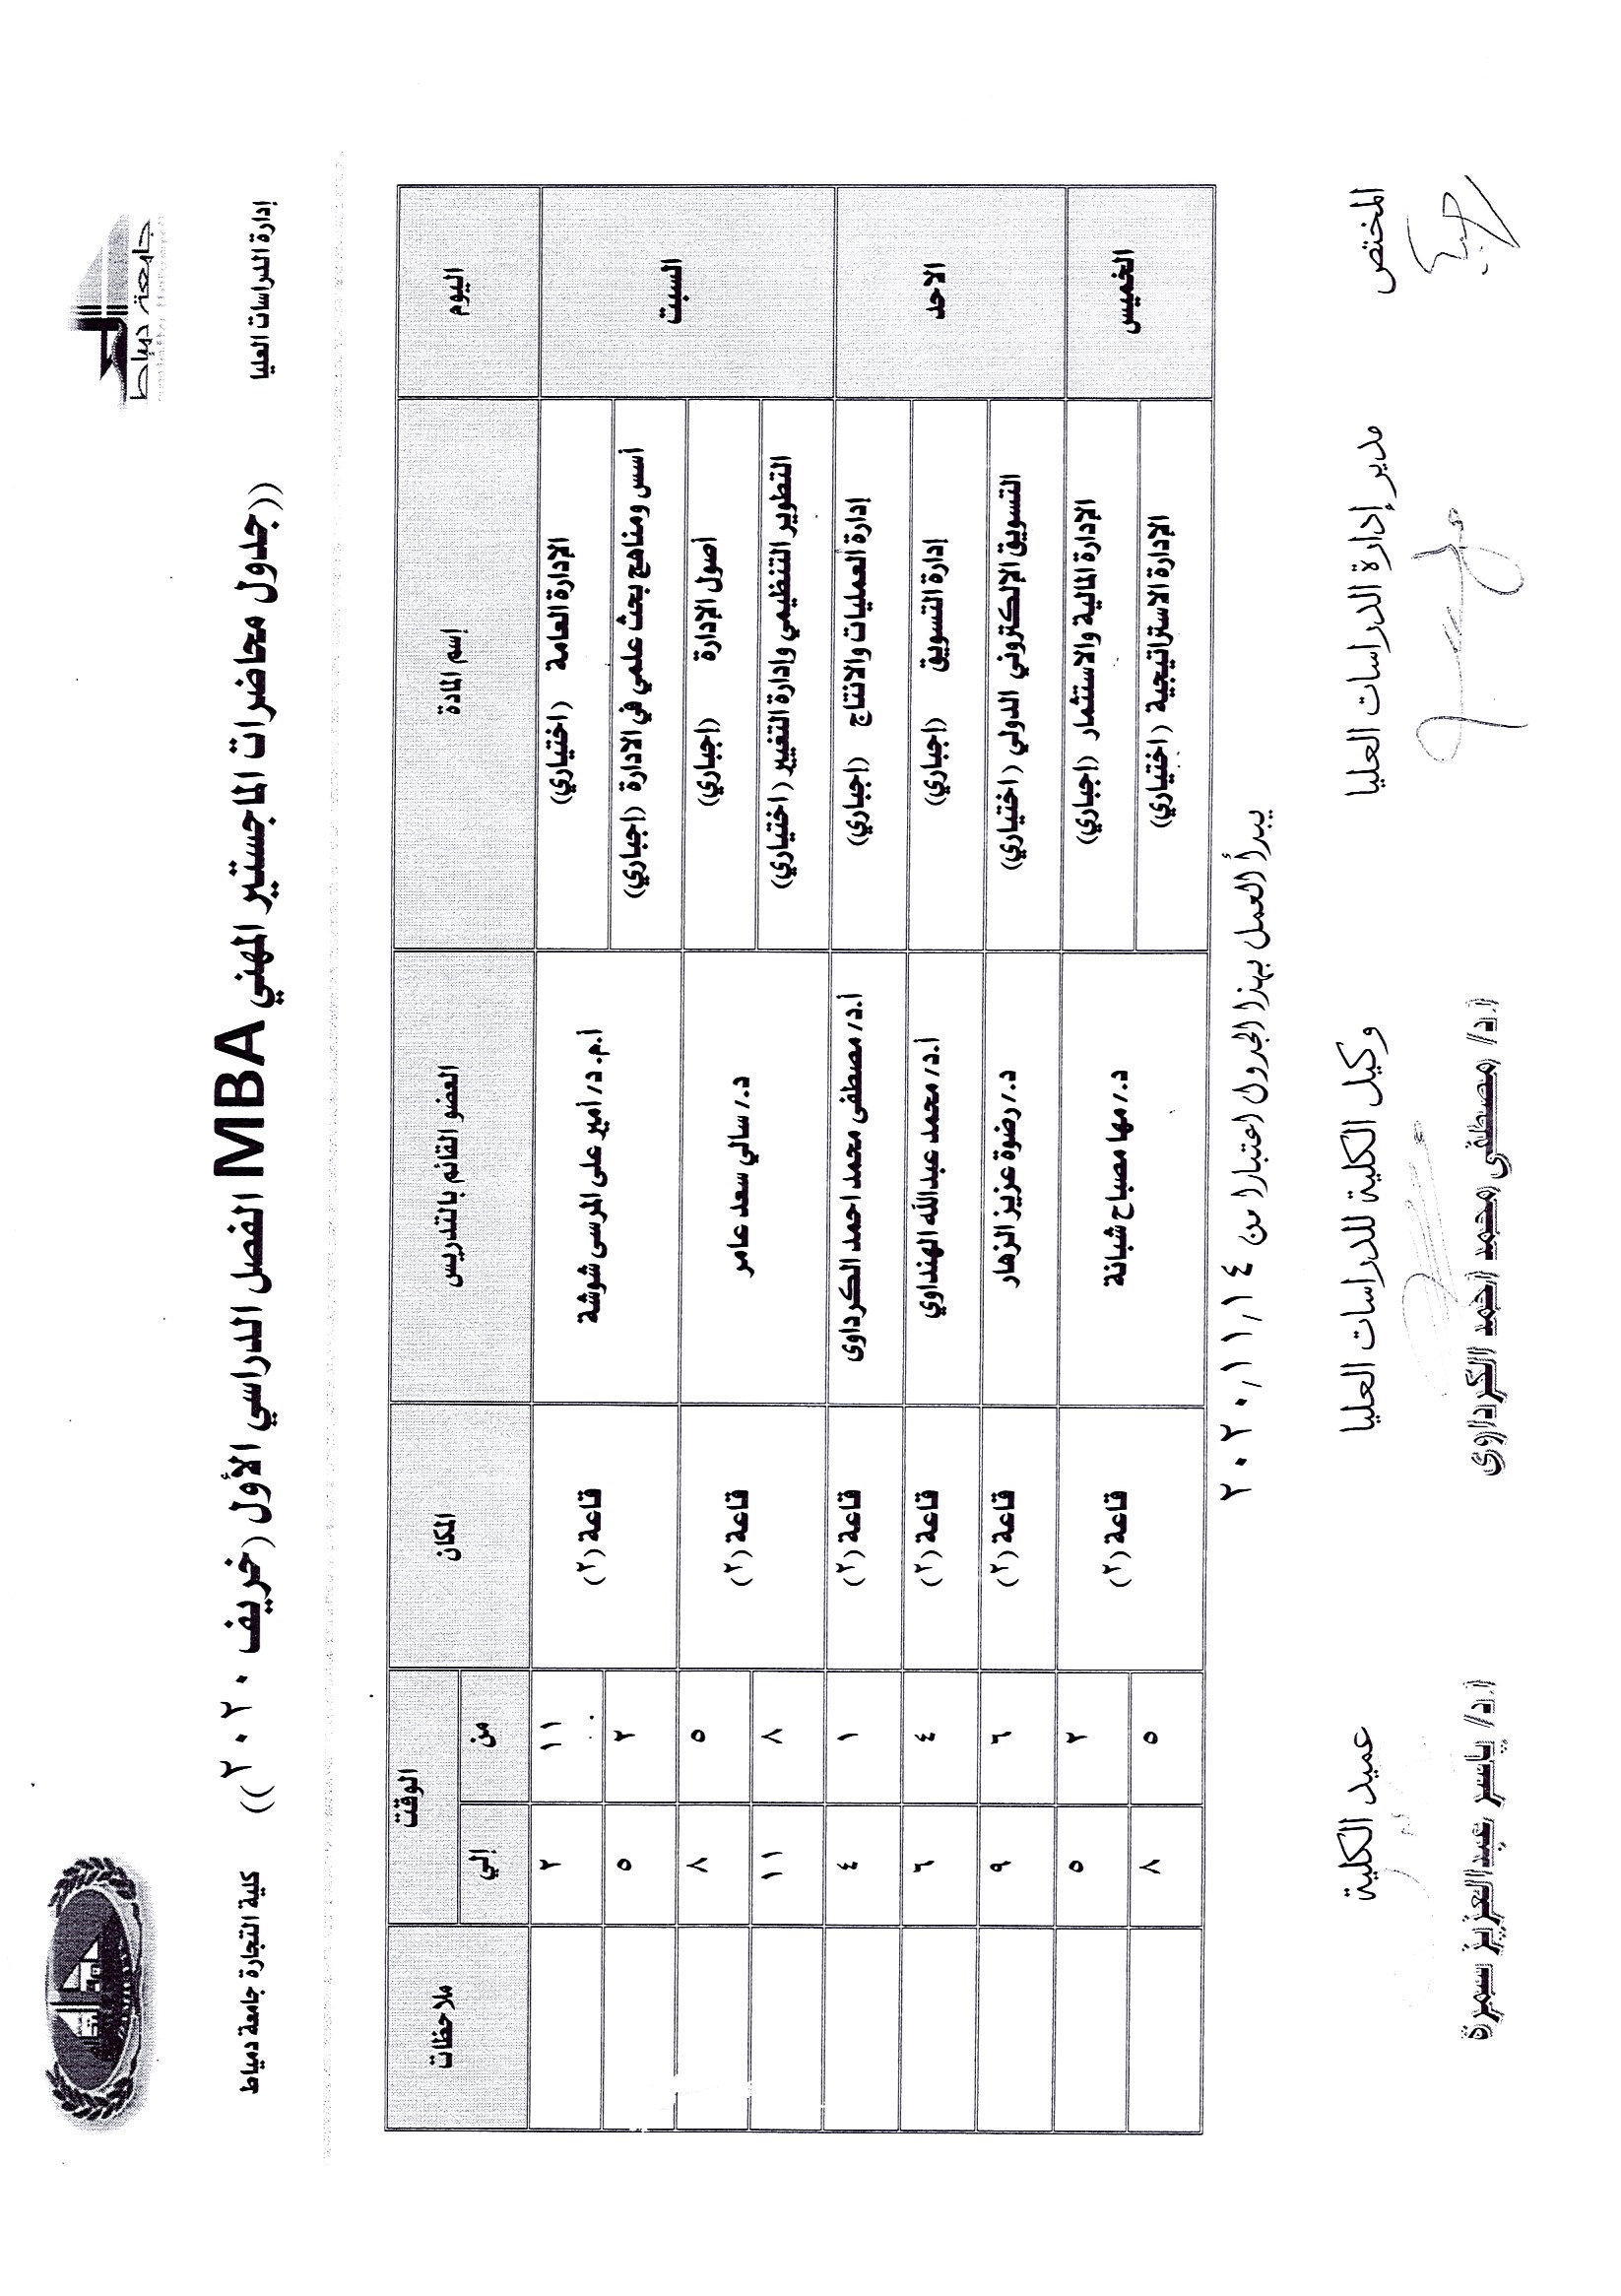 جامعة دمياط
إدارة الدراسات العليا
كلية التجارة جامعة دمياط
((جدول محاضرات الماجستير المهني MBA الفصل الدراسي الأول (خريف ٢٠٢٠))
اليوم إسم المادة العضو القائم بالتدريس المكان الوقت ملاحظات
من إلي
السبت الإدارة العامة (اختياري) أ.م.د/ أمير على المرسى شوشة قاعة (٢) ١١ ٢
أسس ومناهج بحث علمي في الادارة (اجباري) ٢ ٥
اصول الإدارة (اجباري) د./ سالي سعد عامر قاعة (٢) ٥ ٨
التطوير التنظيمي وإدارة التغيير (اختياري) ٨ ١١
الاحد إدارة العمليات والانتاج (اجباري) أ.د/ مصطفى محمد احمد الكرداوى قاعة (٢) ١ ٤
إدارة التسويق (اجباري) أ.د/ محمد عبدالله الهنداوي قاعة (٢) ٤ ٦
التسويق الإلكتروني الدولي (اختياري) د./ رضوة عزيز الزهار قاعة (٢) ٦ ٩
الخميس الإدارة المالية والاستثمار (اجباري) د./ مها مصباح شبانة قاعة (٢) ٢ ٥
الإدارة الاستراتيجية (اختياري) ٥ ٨
يبدأ العمل بهذا الجدول اعتبارا من ٢٠٢٠/١١/١٤
المختص مدير إدارة الدراسات العليا وكيل الكلية للدراسات العليا عميد الكلية
ا.د/ مصطفى محمد احمد الكرداوى ا.د/ ياسر عبدالعزيز سمرة